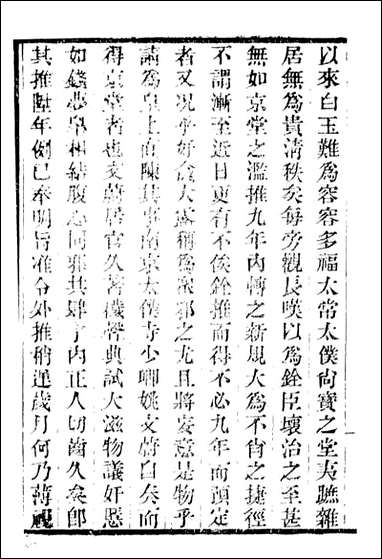 以來白玉難爲容容多福太常太僕尚寶之堂夷雜
居無爲貴清秩矣每旁觀長嘆以爲銓臣壞治之至甚
無如京堂之濫推九年內轉之新規大爲不肖之捷徑
不謂漸至近日更有不俟銓推而得不必九年而預定
者又况乎奸貪大露稱爲衰邪之尤且將安意是物乎
請爲皇上直陳其事南京太僕寺少卿姚文蔚白奏而
得京堂者也文蔚居官久著穢聲典試大滋物議奸惡
如錢夢皋相結腹心何雅其肆于內正人切齒久矣郎
其推陞年例已奉明旨准令外推稍運歲月何乃薄視